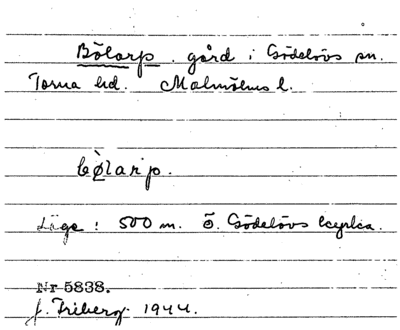 Bölarp. gård i Gödelövs sn.
Torna hd. Malmöhus l.
bø̀lar'p.
Läge: 500 m. Ö. Gödelövs kyrka.
Nr 5838.
J. Friberg 1944.